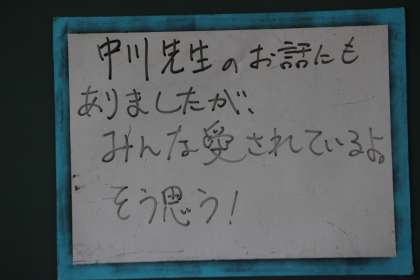 中川先生のお話にも
ありましたが、
みんな愛されているよ。
そう思う!